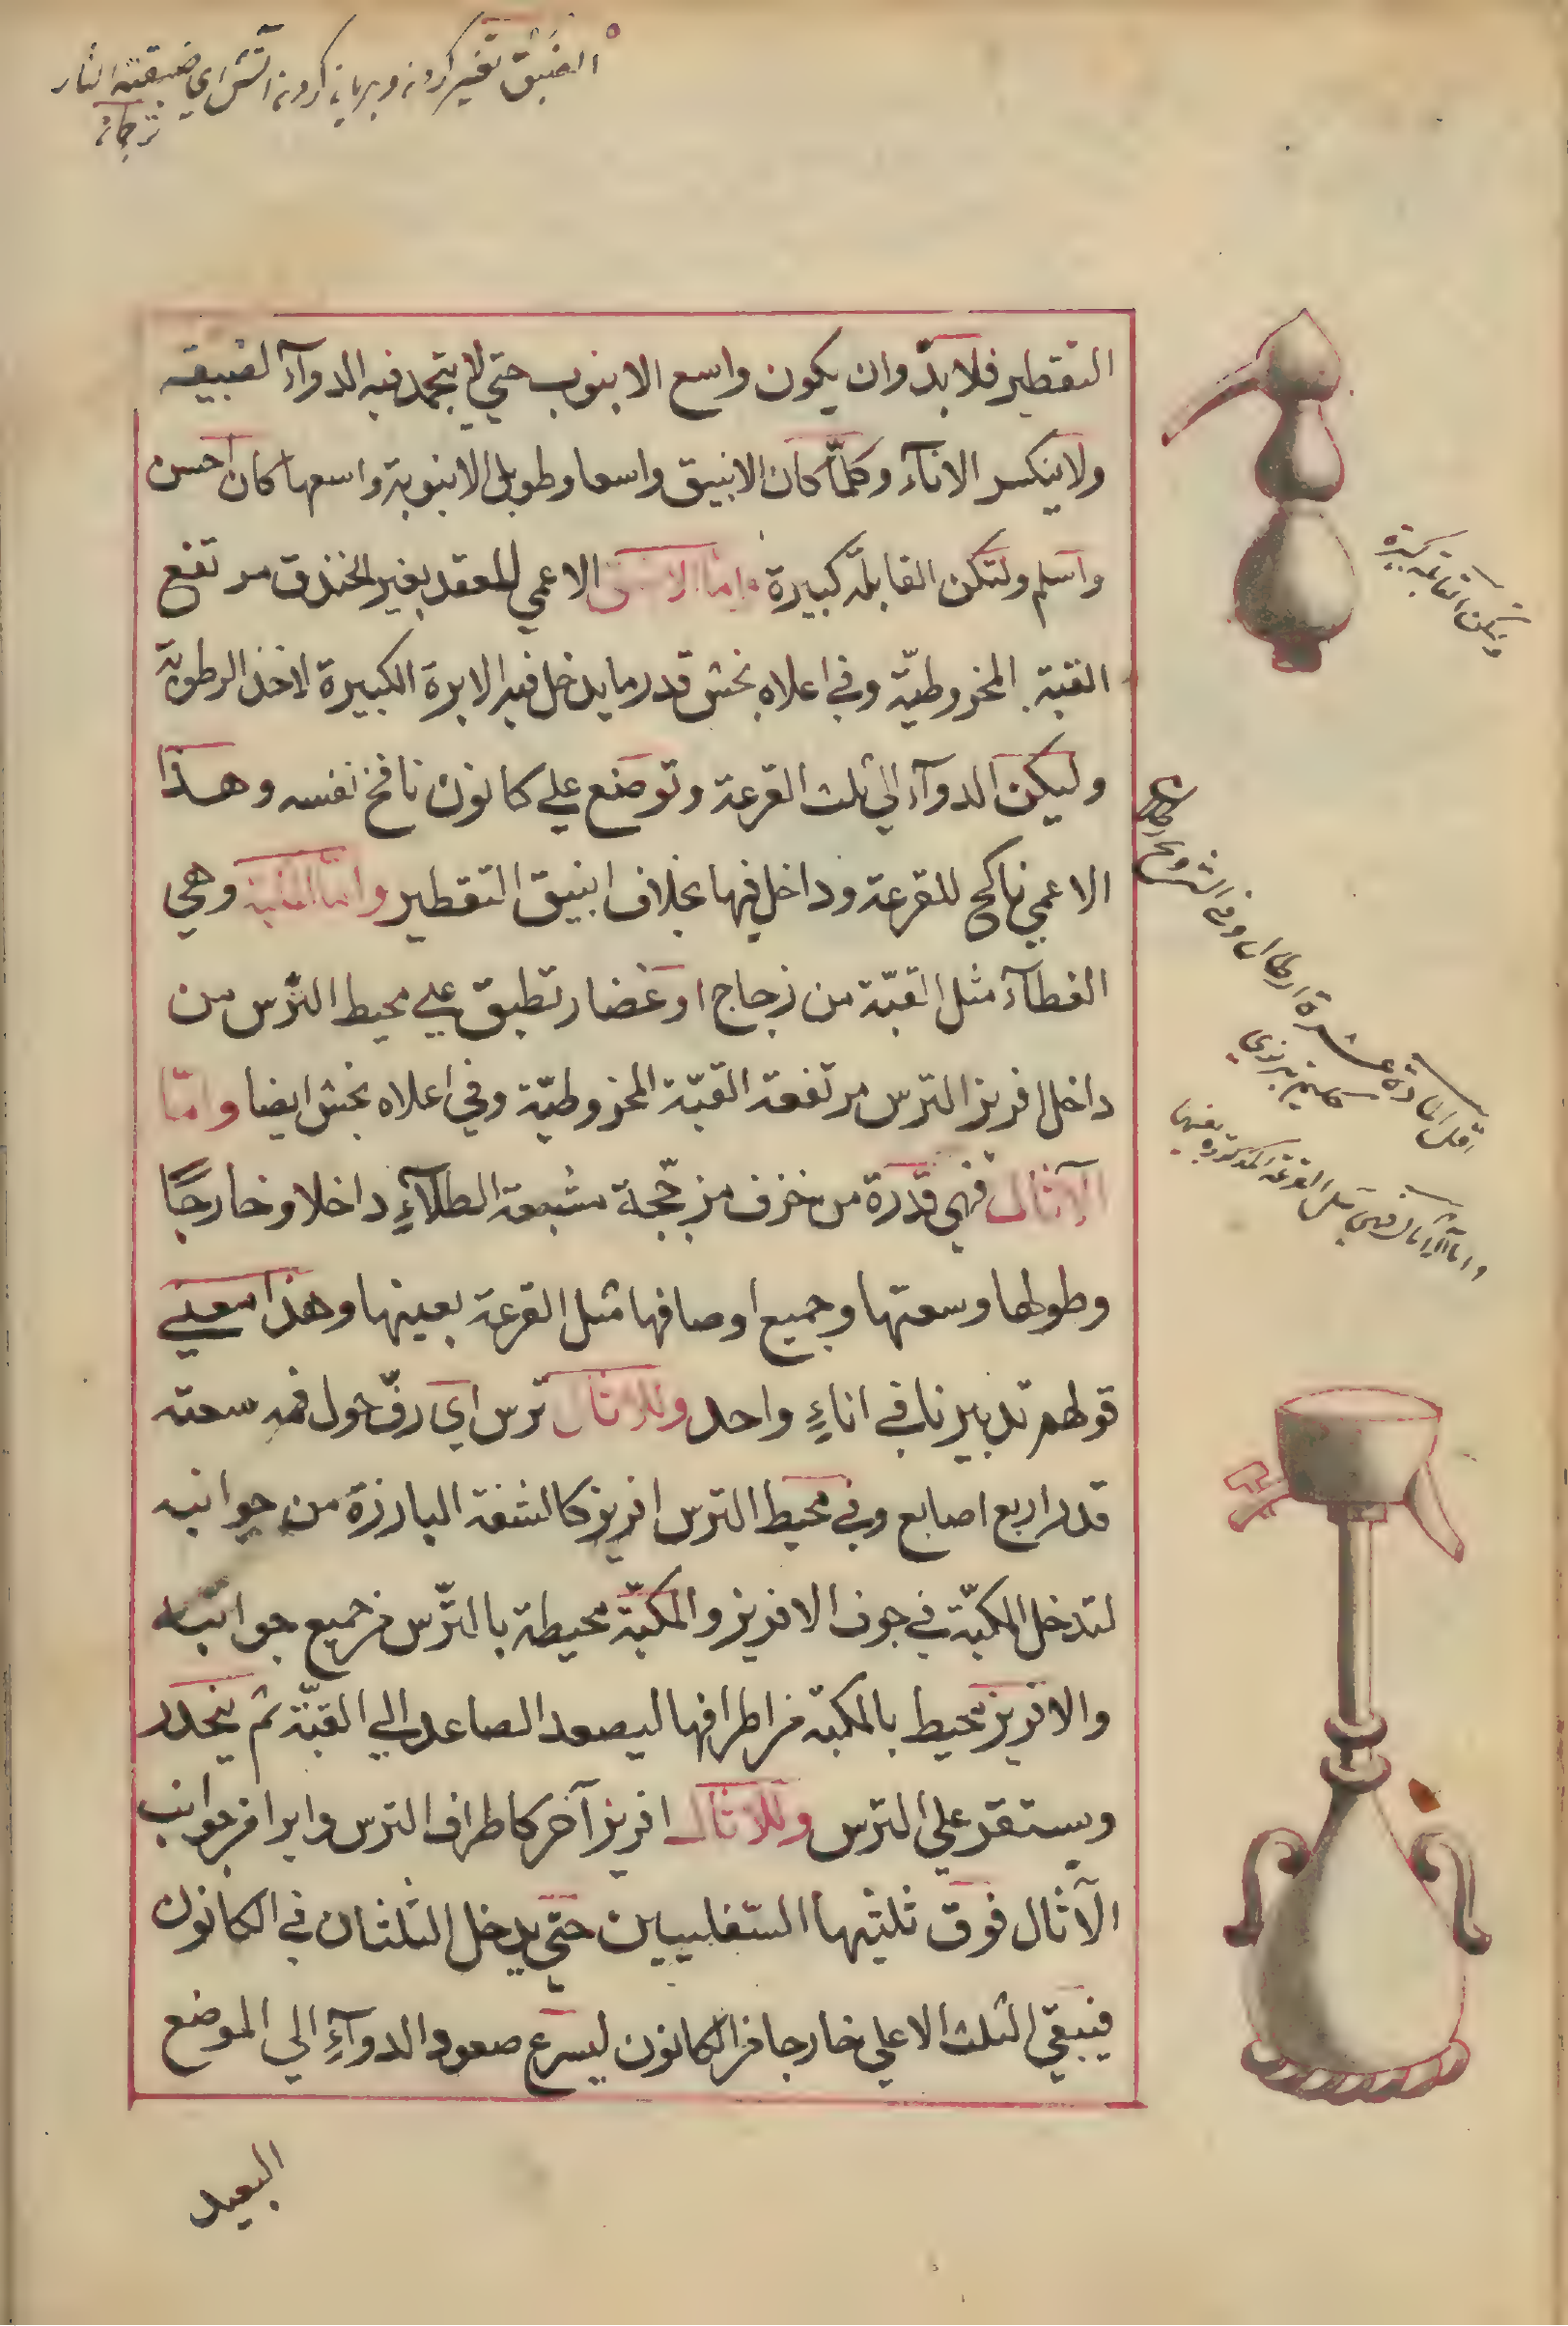 التقطير فلا بدّ وان يكون واسع الانبوب حتي لا يتجمد فيه الدوآء لضيقه
ولا ينكسر الانآء وكلمّا كان الانبيق واسعا وطويل الانبوبة واسعها كان احسن
واسلم ولتكن القابلة كبيرة واما الانبيق الاعمي للعقد بغير الخندق مرتفع
القبة المخروطيّة وفي اعلاه بخش قدر ما يدخل فيه الابرة الكبيرة لاخذ الرطوبة
وليكن الدوآء الي ثلث القرعة وتوضع علي كانون نافخ نفسه وهذا
الاعمي ناكح للقرعة وداخل فيها بخلاف انبيق التقطير واما المكبة وهي
الغطآء مثل القبّة من زجاج او غضار تطبق علي محيط الترس من
داخل افريز الترس مرتفعة القبّة المخروطيّة وفي اعلاه بخش ايضا وامّا
الآثال فهي قدرة من خزف مزجّجة مشبعة الطلآءِ داخلا وخارجًا
وطولها وسعتها وجميع اوصافها مثل القرعة بعينها وهذا معني
قولهم تدبيرنا في اناءٍ واحد وللاثال ترس اي رفّ حول فمه سعته
قدر اربع اصابع وفي محيط الترس افريز كالشفة البارزة من جوانبه
لتدخل المكبّة في جوف الافريز والمكبّة محيطة بالترّس من جميع جوانبه
والافريز محيط بالمكبّة من اطرافها ليصعد الصاعد الي القبّة ثم ينحدر
ويستقر علي الترس وللاثال افريز آخر كاطراف الترس دايرا من جوانب
الآثال فوق ثلثيها السّفليين حتّي يدخل الثلثان في الكانون
فيبقي الثلث الاعلي خارجا من الكانون ليسرع صعود الدوآءِ الي الموضع
البعيد
ولتكن القابلة كبيرة
اقل المادة عشرة ارطال وفي الشروح
واما الاثال فهي مثل القرعة المذكورة بعينها